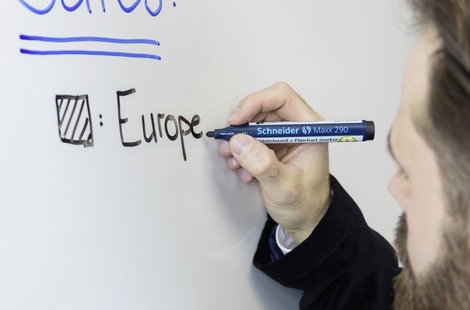 : Europe
Schneider Maxx 290
Whiteboard + Flipchart marker